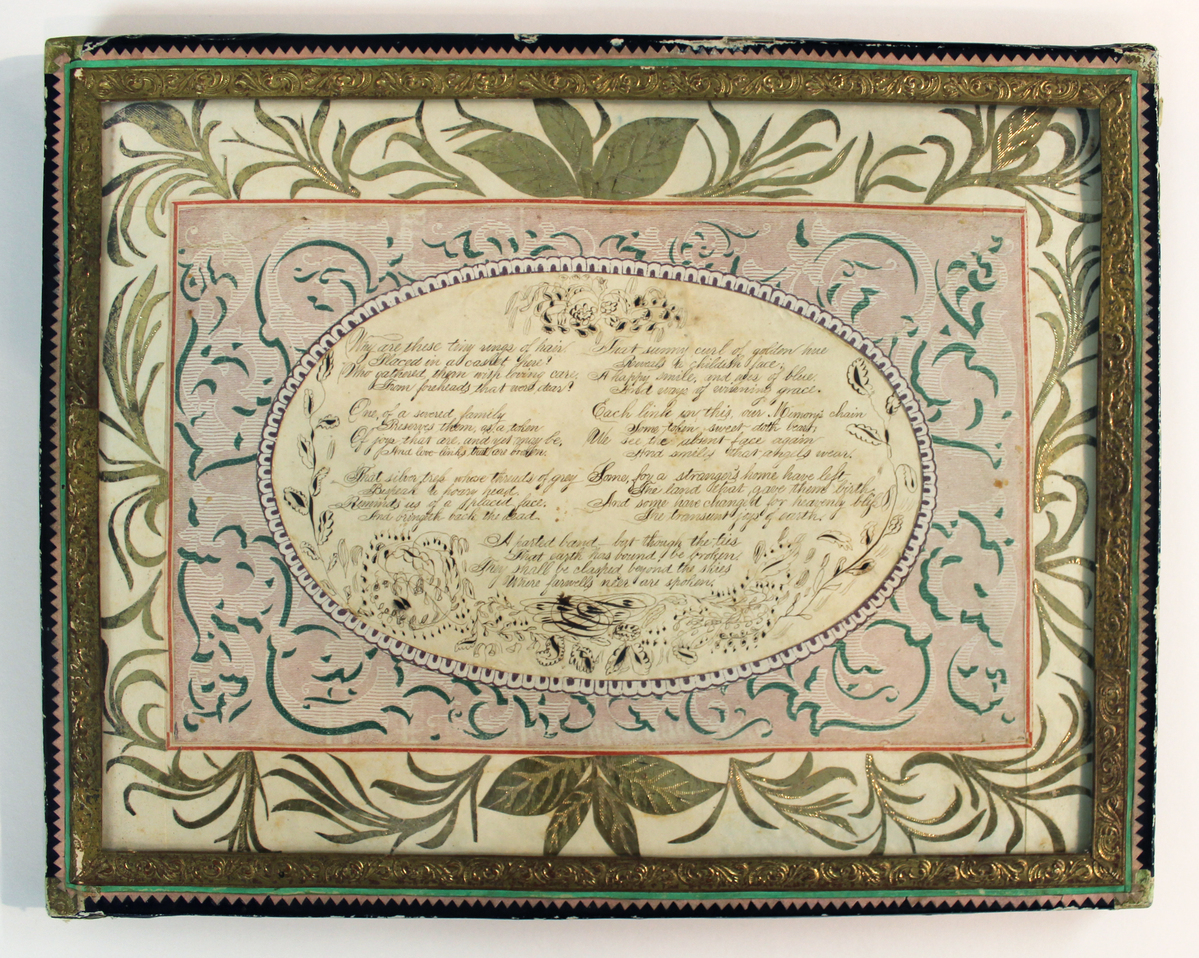 Why are these tiny rings of hair
Placed in a casket here?
Who gathered them with loving care,
From foreheads that were dear?
One, of a severed family
Preserves them, as a token
Of joys that are, and yet may be,
And love-links, that are broken.
That silver tress whose threads of grey
Bespeak the hoary head,
Reminds us of a placid face,
And bringeth back the dead.
That sunny curl of golden hue
Reveals the childish face;
A happy smile, and eyes of blue,
And ways of winning grace.
Each link in this, our Memory's chain
Some token, sweet doth bear;
We see the absent face again
And smiles that angels wear.
Some, for a stranger's home have left
The land that gave them birth
And some have changed for heavenly bliss
The transient joys of earth.
A parted band, but though the ties
That earth has bound, be broken,
They shall be clasped beyond the skies
Where farewells ne'er are spoken.